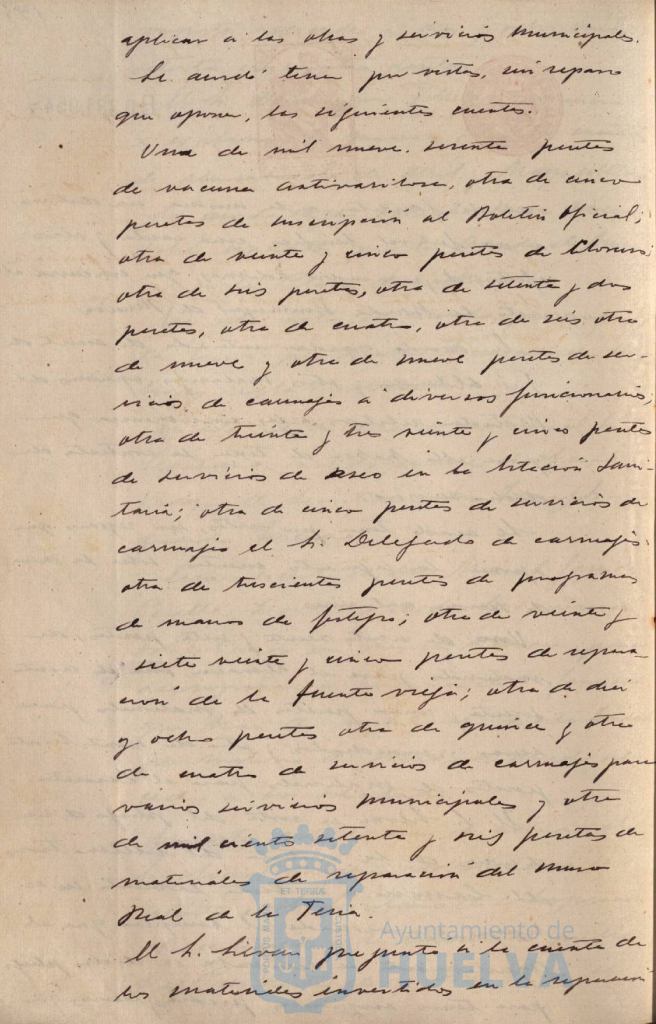 aplicar a las obras y servicios municipales.
Se acordó tener por vistas, sin reparo
que oponer, las siguientes cuentas.
Una de mil nueve. sesenta pesetas
de vacuna antivariolosa, otra de cinco
pesetas de suscripción al Boletin Oficial;
otra de veinte y cinco pesetas de Cloruro;
otra de seis pesetas, otra de setenta y dos
pesetas, otra de cuatro, otra de seis otra
de nueve y otra de nueve pesetas de ser-
vicios de carruajes a diversos funcionarios;
otra de treinta y tres veinte y cinco pesetas
de servicios de aseo en la Estación Sani-
taria; otra de cinco pesetas de servicios de
carruajes el Sr. Delegado de carruajes.
otra de trescientas pesetas de programas
de manos de festejos; otra de veinte y
siete veinte y cinco pesetas de repara-
ción de la fuente vieja; otra de diez
y ocho pesetas otra de quince y otra
de cuatro de servicios de carruajes para
varios servicios municipales y otra
de mil ciento setenta y seis pesetas de
materiales de reparación del muro
Real de la Feria.
El Sr. pregunta si la cuenta de
los materiales invertidos en la reparación
Ayuntamiento de
HUELVA